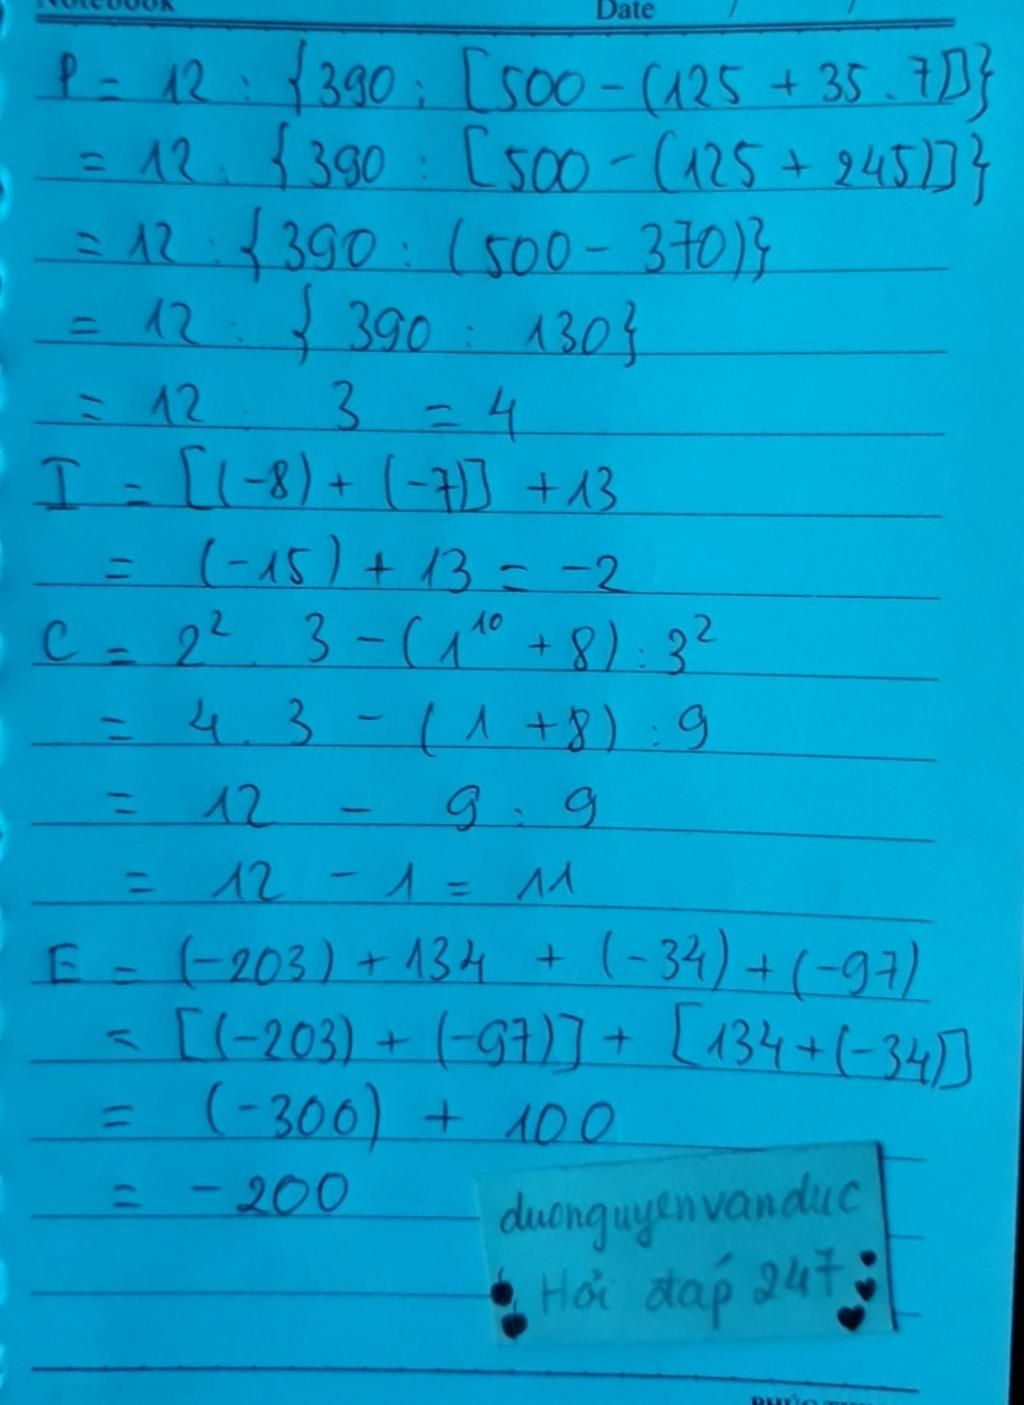 Notebook
Date / /
P = 12 : {390 : [500 - (125 + 35 . 7)]}
= 12 : {390 : [500 - (125 + 245)]}
= 12 : {390 : (500 - 370)}
= 12 : {390 : 130}
= 12 : 3 = 4
I = [(-8) + (-7)] + 13
= (-15) + 13 = -2
C = 2² . 3 - (1¹⁰ + 8) : 3²
= 4 . 3 - (1 + 8) : 9
= 12 - 9 : 9
= 12 - 1 = 11
E = (-203) + 134 + (-34) + (-97)
= [(-203) + (-97)] + [134 + (-34)]
= (-300) + 100
= -200
ducnguyenvanduc
Hỏi đáp 247